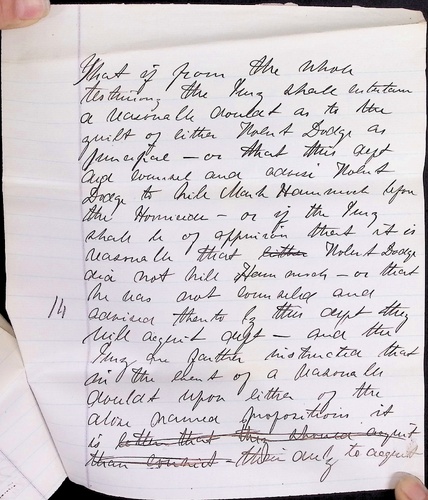 That if from the whole
testimony the Jury shall entertain
a reasonable doubt as to the
guilt of either Robert Dodge as
principal - or that this deft
did counsel and advise Robert
Dodge to kill Mark Hammock before
the Homicide - or if the Jury
shall be of oppinion that it is
reasonable that either Robert Dodge
did not kill Hammock - or that
he was not counseled and
advised thereto by this deft they
will acquit deft - and the
14
Jury are further instructed that
in the event of a reasonable
doubt upon either of the
above named propositions it
is better that they should acquit
than convict - their duty to acquit